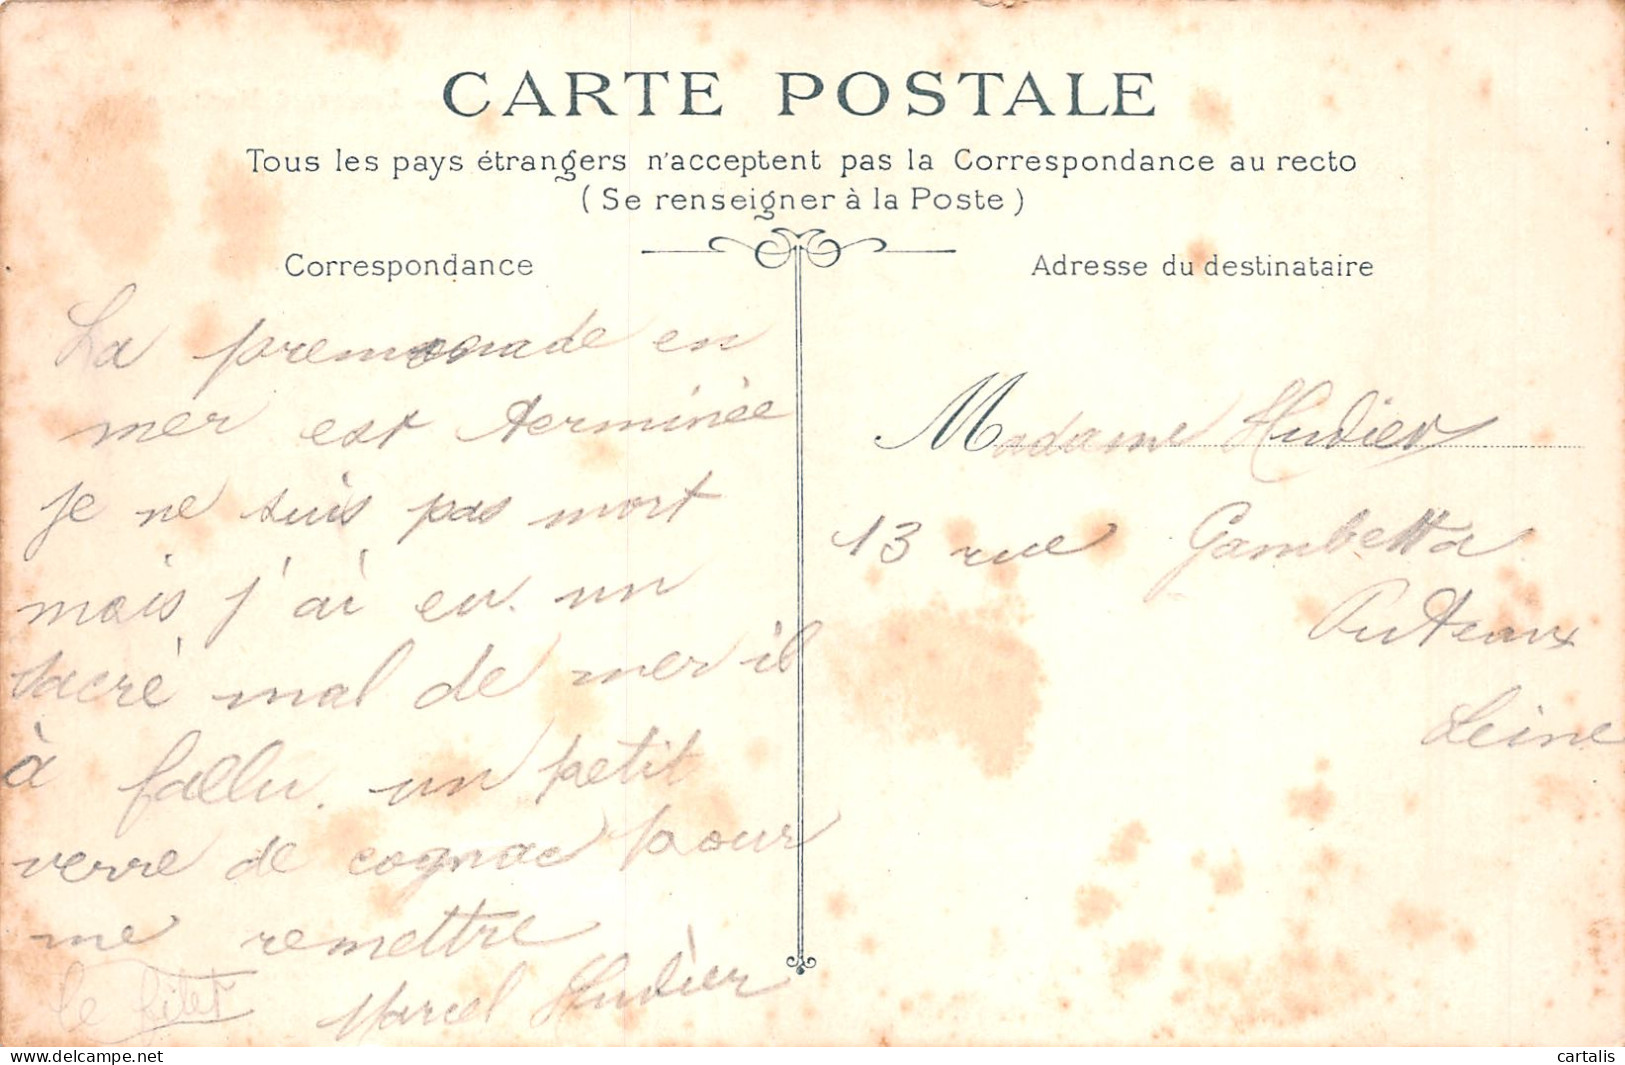 CARTE POSTALE
Tous les pays étrangers n'acceptent pas la Correspondance au recto
(Se renseigner à la Poste)
Correspondance
La promenade en
mer est terminée
je ne suis pas mort
mais j'ai eu un
sacré mal de mer il
à fallu un petit
verre de cognac pour
me remettre
Marcel Hudier
le
Adresse du destinataire
Madame Hudier
13 rue Gambetta
Puteaux
Seine
www.delcampe.net
cartalis